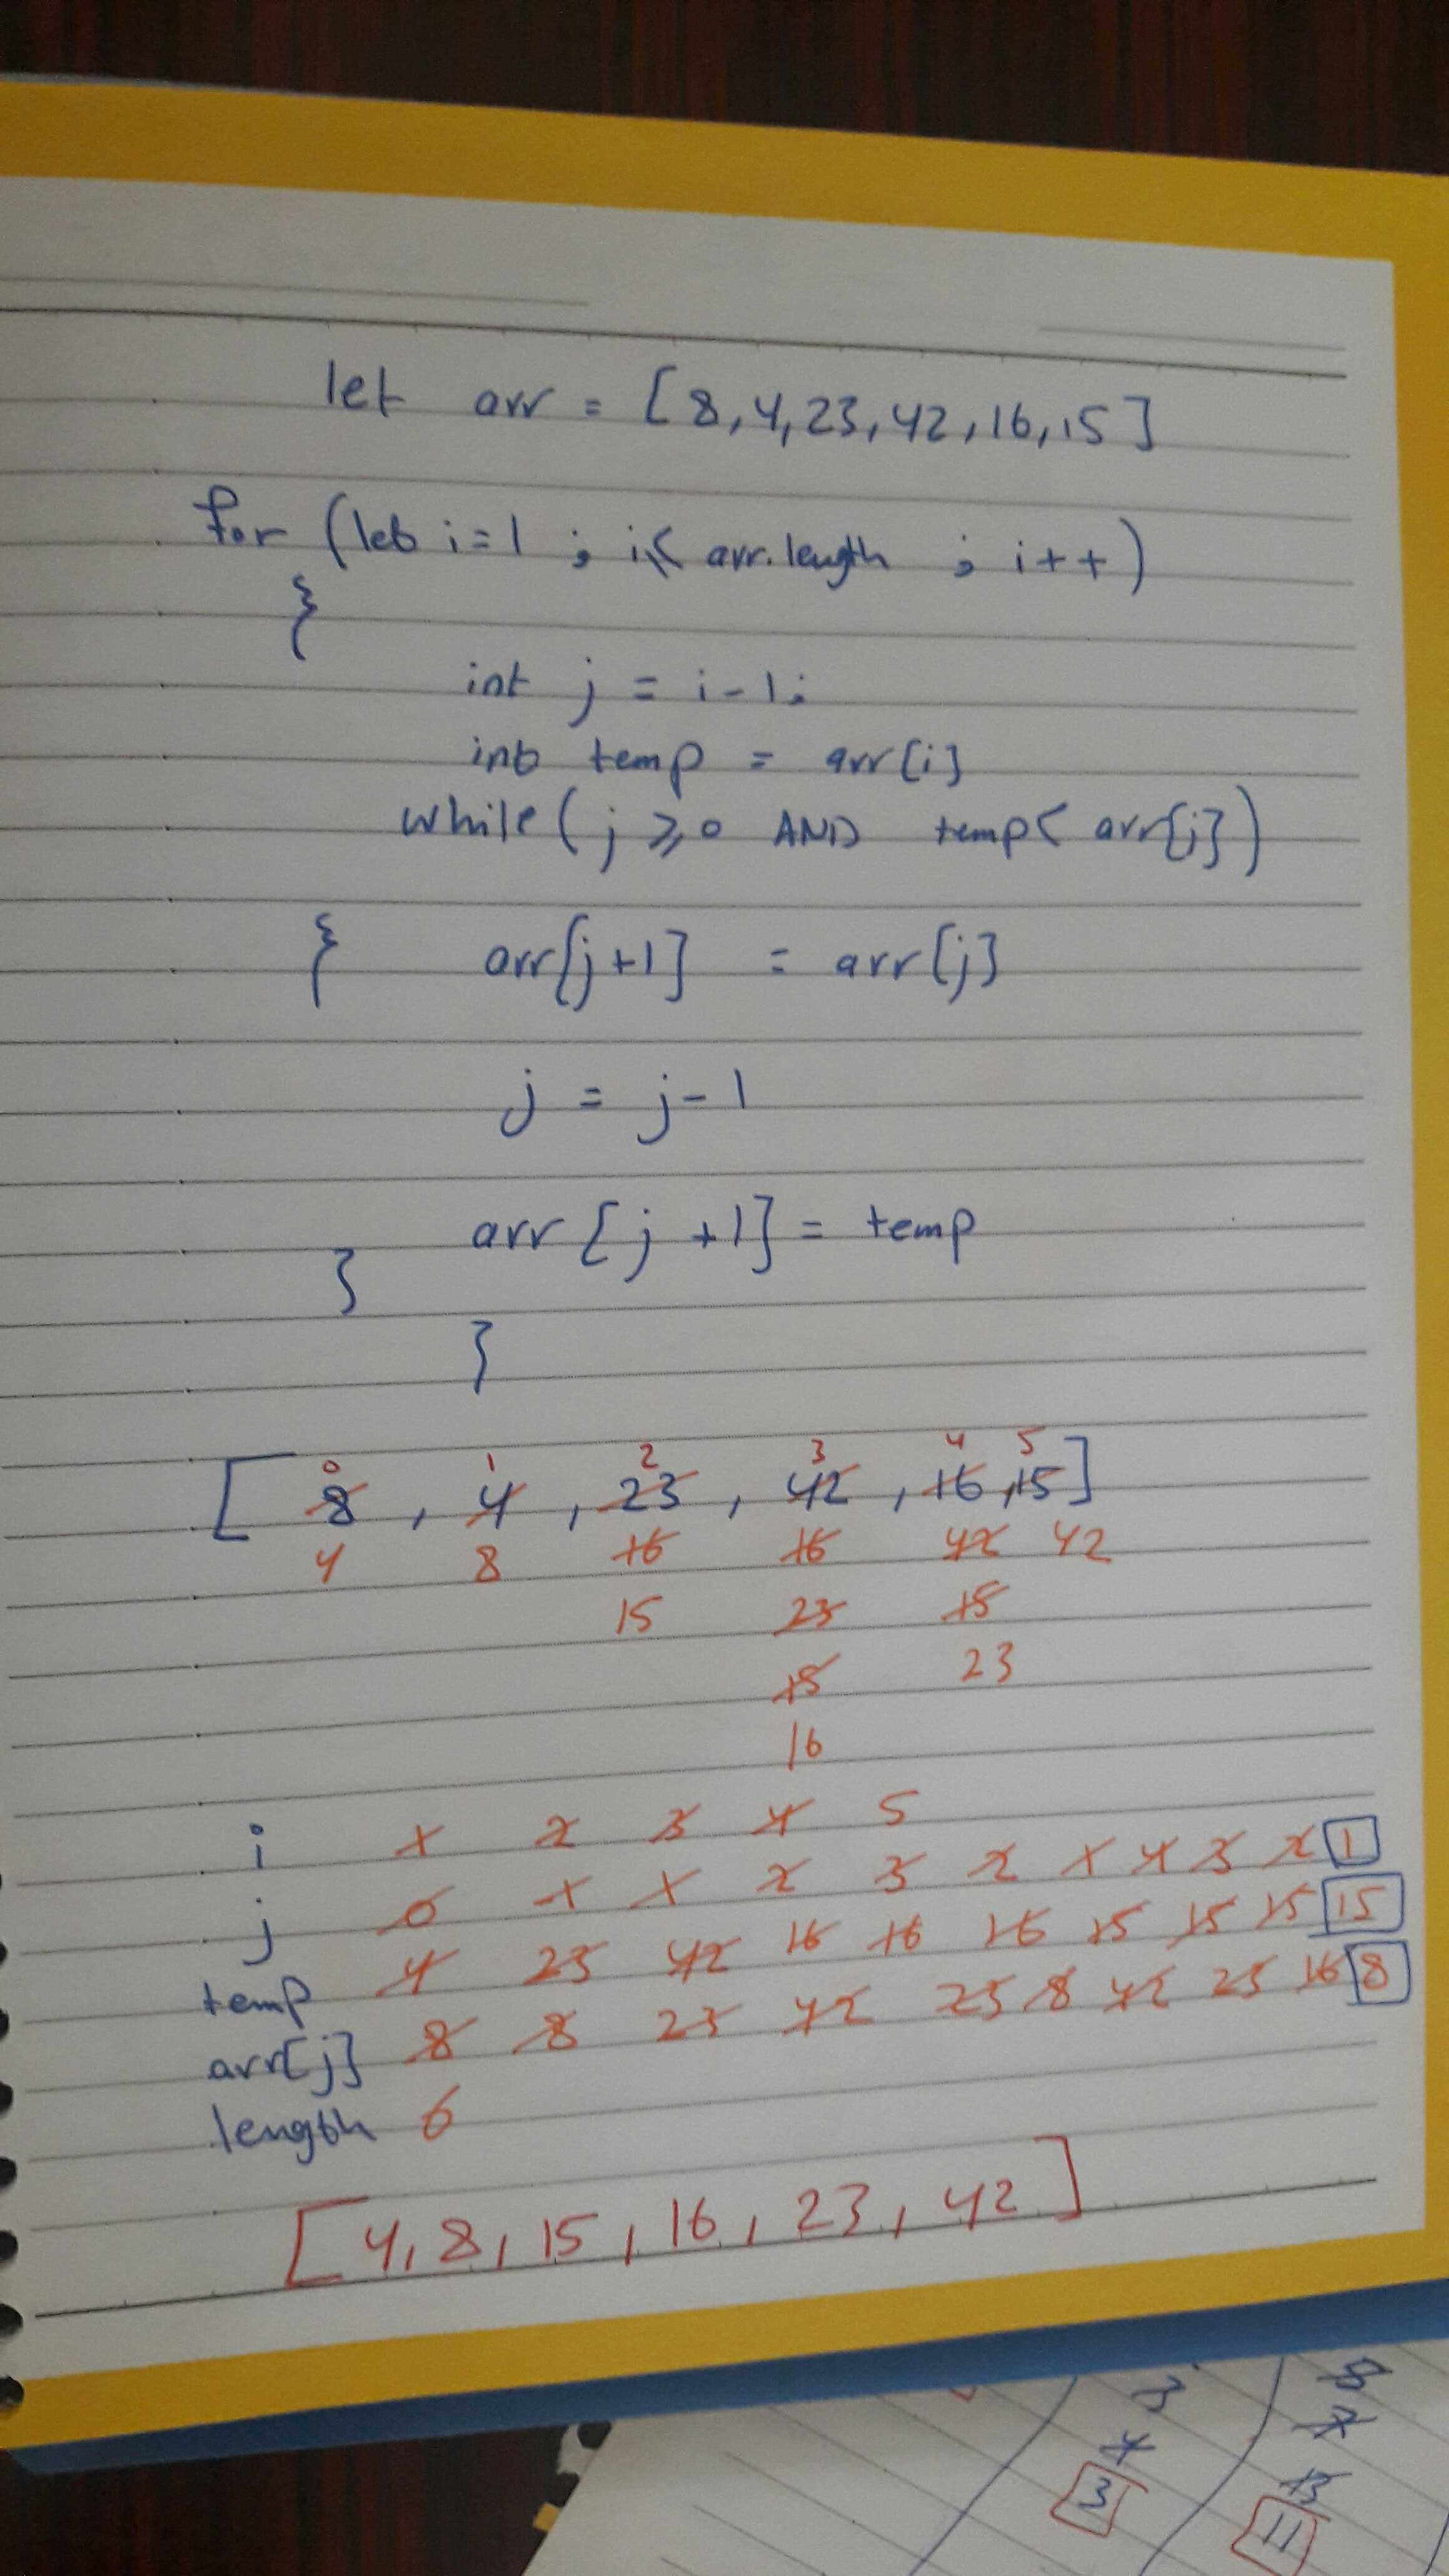 let arr = [8,4,23,42,16,15]
for (let i=1 ; i< arr.length ; i++)
{
int j = i-1;
int temp = arr[i]
while(j ≥ 0 AND temp< arr[j])
{ arr[j+1] = arr[j]
j = j-1
arr[j+1] = temp
}
}
0 1 2 3 4 5
[8, 4, 23, 42, 16, 15]
4 8 16 16 42 42
15 23 15
15 23
16
i 1 2 3 4 5
j 0 1 1 2 3 2 1 4 3 2 1
temp 4 23 42 16 16 16 15 15 15 15
arr[j] 8 8 23 42 23 8 42 23 16 8
length 6
[4, 8, 15, 16, 23, 42]
3 8
4 7
3 13
11